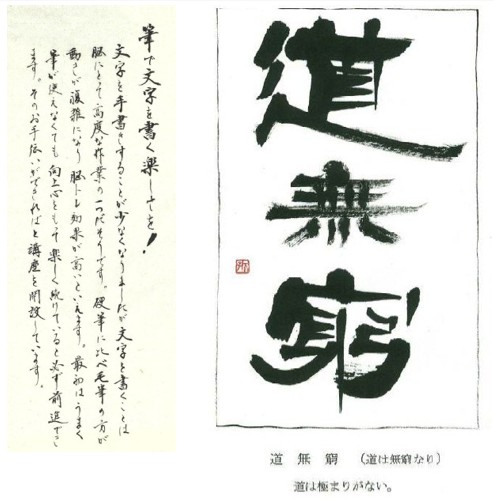 筆で文字を書く楽しさを!
文字を手書きすることが少なくなりましたが文字を書くことは
脳にとって高度な作業の一つだそうです。硬筆に比べ毛筆の方が
動きが複雑になり脳トレ効果が高いといえます。最初はうまく
筆が使えなくても向上心をもって楽しく続けていると必ず前進でき
ます。そのお手伝いができればと講座を開設しています。
道無窮
道 無 窮 (道は無窮なり)
道は極まりがない。